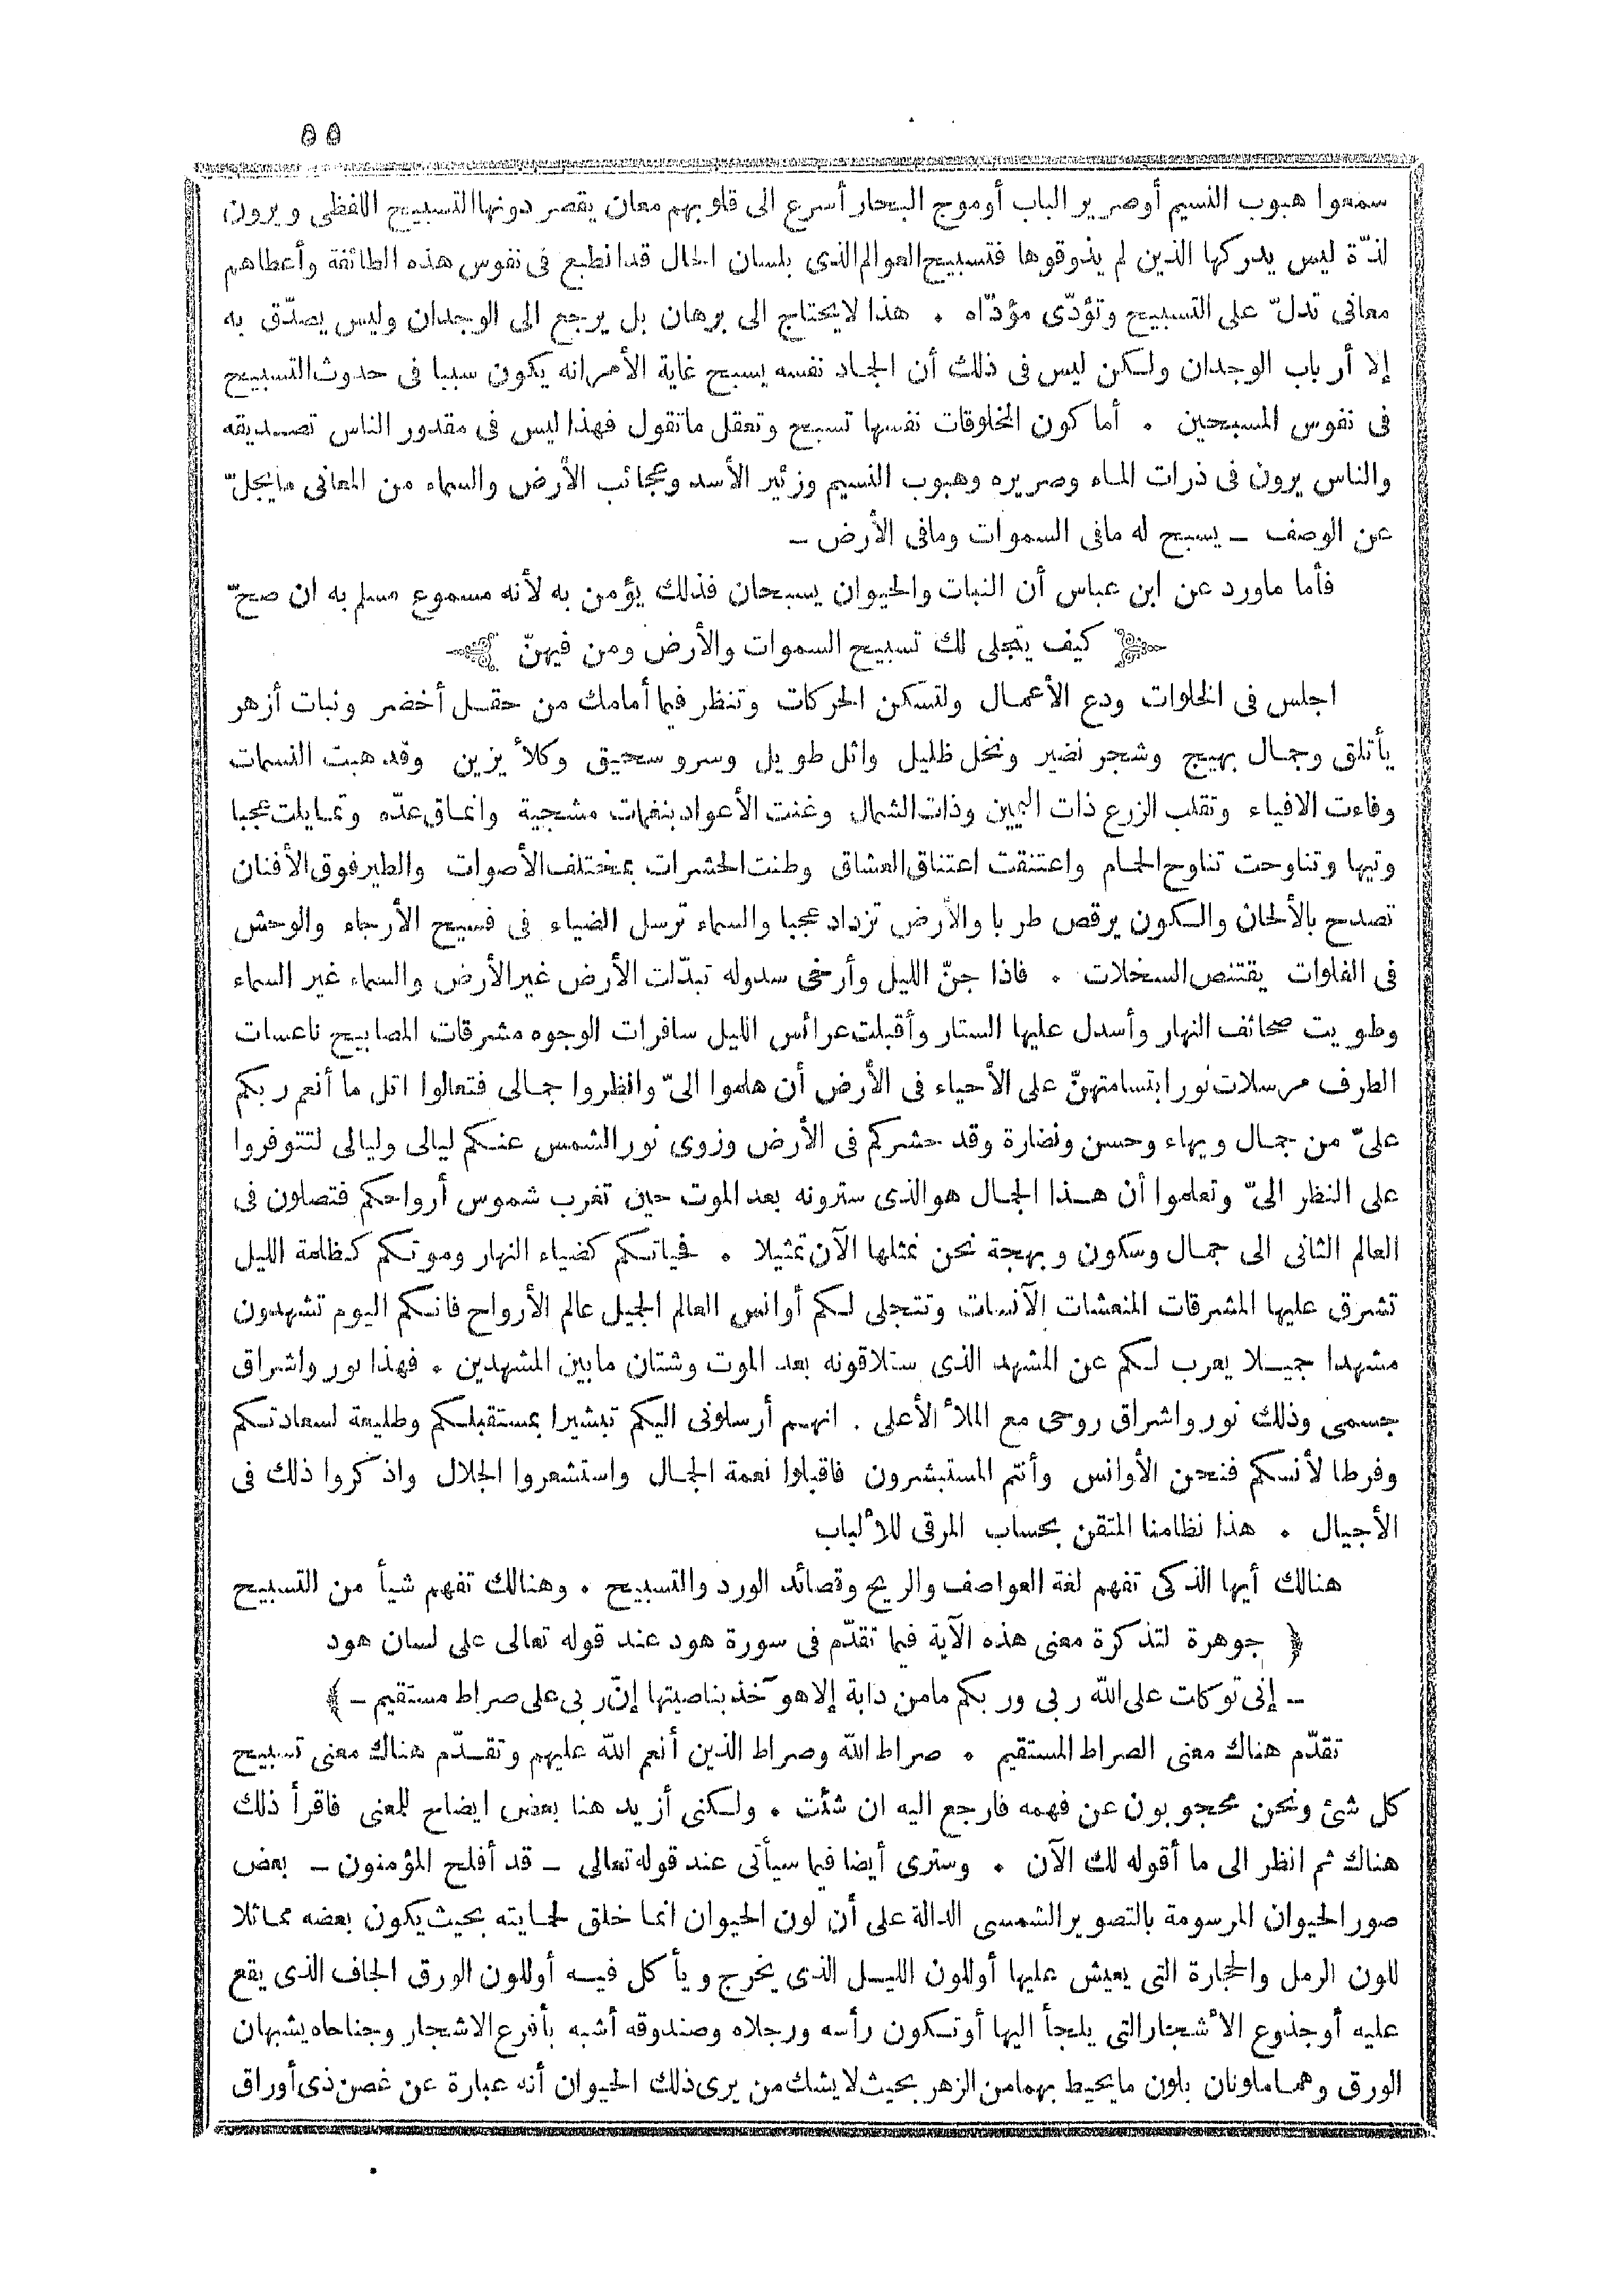 ٥٥
سمعوا هبوب النسيم أو صرير الباب أو موج البحار أسرع الى قلوبهم معان يقصر دونها التسبيح اللفظى ويرون
لذّة ليس يدركها الذين لم يذوقوها فتسبيح العوالم الذى بلسان الحال قد انطبع فى نفوس هذه الطائفة وأعطاهم
معانى تدلّ على التسبيح وتؤدّى مؤدّاه . هذا لا يحتاج الى برهان بل يرجع الى الوجدان وليس يصدّق به
إلا أرباب الوجدان ولكن ليس فى ذلك أن الجماد نفسه يسبح غاية الأمر انه يكون سببا فى حدوث التسبيح
فى نفوس المسبحين . أما كون المخلوقات نفسها تسبح وتعقل ما تقول فهذا ليس فى مقدور الناس تصديقه
والناس يرون فى ذرات الماء وصريره وهبوب النسيم وزئير الأسد وعجائب الأرض والسماء من المعانى ما يجلّ
عن الوصف – يسبح له مافى السموات ومافى الأرض –
فأما ماورد عن ابن عباس أن النبات والحيوان يسبحان فذلك يؤمن به لأنه مسموع مسلم به ان صحّ
كيف يتجلى لك تسبيح السموات والأرض ومن فيهنّ
اجلس فى الخلوات ودع الأعمال ولتسكن الحركات وتنظر فيما أمامك من حقل أخضر ونبات أزهر
يأتلق وجمال بهيج وشجر نضير ونخل ظليل واثل طويل وسرو سحيق وكلأ يزين وقد هبت النسمات
وفاءت الافياء وتقلب الزرع ذات اليمين وذات الشمال وغنت الأعواد بنغمات مشجية وانماق عدّه وتمايلت عجبا
وتيها وتناوحت تناوح الحمام واعتنقت اعتناق العشاق وطنت الحشرات بمختلف الأصوات والطير فوق الأفنان
تصدح بالألحان والسكون يرقص طربا والأرض تزداد عجبا والسماء ترسل الضياء فى فسيح الأرجاء والوحش
فى الفلوات يقتنص السخلات . فاذا جنّ الليل وأرخى سدوله تبدّلت الأرض غير الأرض والسماء غير السماء
وطويت صحائف النهار وأسدل عليها الستار وأقبلت عرائس الليل سافرات الوجوه مشرقات المصابيح ناعسات
الطرف مرسلات نور ابتسامتهنّ على الأحياء فى الأرض أن هلموا الىّ وانظروا جمالى فتعالوا اتل ما أنعم ربكم
علىّ من جمال وبهاء وحسن ونضارة وقد حشركم فى الأرض وزوى نور الشمس عنكم ليالى وليالى لتتوفروا
على النظر الىّ وتعلموا أن هذا الجمال هو الذى سترونه بعد الموت حين تغرب شموس أرواحكم فتصلون فى
العالم الثانى الى جمال وسكون وبهجة نحن نمثلها الآن تمثيلا . فحياتكم كضياء النهار وموتكم كظلمة الليل
تشرق عليها المشرقات المنعشات الآنسات وتتجلى لكم أوانس العالم الجميل عالم الأرواح فانكم اليوم تشهدون
مشهدا جميلا يعرب لكم عن المشهد الذى ستلاقونه بعد الموت وشتان مابين المشهدين . فهذا نور واشراق
جسمى وذلك نور واشراق روحى مع الملأ الأعلى . انهم أرسلونى اليكم تبشيرا بمستقبلكم وطليعة لسعادتكم
وفرطا لأنسكم فنحن الأوانس وأنتم المستبشرون فاقبلوا نعمة الجمال واستشعروا الجلال واذكروا ذلك فى
الأجيال . هذا نظامنا المتقن بحساب المرقى للألباب
هنالك أيها الذكى تفهم لغة العواصف والريح وقصائد الورد والتسبيح . وهنالك تفهم شيأ من التسبيح
﴿ جوهرة لتذكرة معنى هذه الآية فيما تقدّم فى سورة هود عند قوله تعالى على لسان هود
– إنى توكلت على الله ربى وربكم مامن دابة إلا هو آخذ بناصيتها إنّ ربى على صراط مستقيم – ﴾
تقدّم هناك معنى الصراط المستقيم . صراط الله وصراط الذين أنعم الله عليهم وتقدّم هناك معنى تسبيح
كل شئ ونحن محجوبون عن فهمه فارجع اليه ان شئت . ولكنى أزيد هنا بعض ايضاح للمعنى فاقرأ ذلك
هناك ثم انظر الى ما أقوله لك الآن . وسترى أيضا فيما سيأتى عند قوله تعالى – قد أفلح المؤمنون – بعض
صور الحيوان المرسومة بالتصوير الشمسى الدالة على أن لون الحيوان انما خلق لحمايته بحيث يكون بعضه مماثلا
للون الرمل والحجارة التى يعيش عليها أو للون الليل الذى يخرج ويأكل فيه أو للون الورق الجاف الذى يقع
عليه أو جذوع الأشجار التى يلجأ اليها أو تكون رأسه ورجلاه وصندوقه أشبه بأفرع الاشجار وجناحاه يشبهان
الورق وهما ملونان بلون مايحيط بهما من الزهر بحيث لا يشك من يرى ذلك الحيوان أنه عبارة عن غصن ذى أوراق